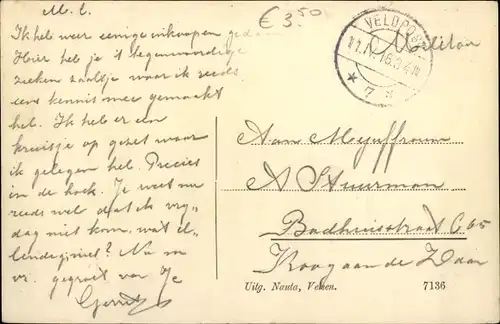 M. C.
€ 3.50
Ik heb weer eenige inkoopen gedaan
Hier heb je 't tegenwoordige
zieken zaaltje waar ik reeds
eens kennis mee gemaakt
heb. Ik heb er een
kruisje op gezet waar
ik gelegen heb. Precies
in de hoek. Je weet nu
reeds wel dat ik vrij-
dag niet kom, wat el-
lendig niet? Nu
gegroet van je
Gerrit
VELDPOST
7
Militair
Aan Mejuffrouw
A Stuurman
Badhuisstraat C 65
Koog aan de Zaan
Uitg. Nauta, Velsen.
7136